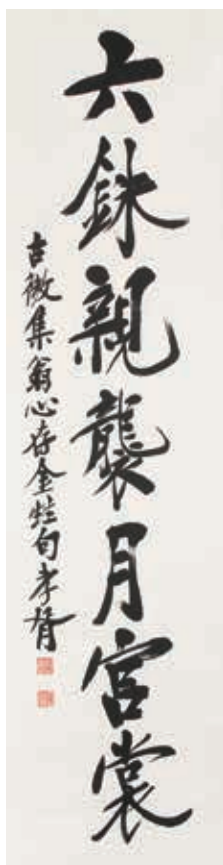 六銖親襲月宮裳
古微集翁心存金蛙句孝胥